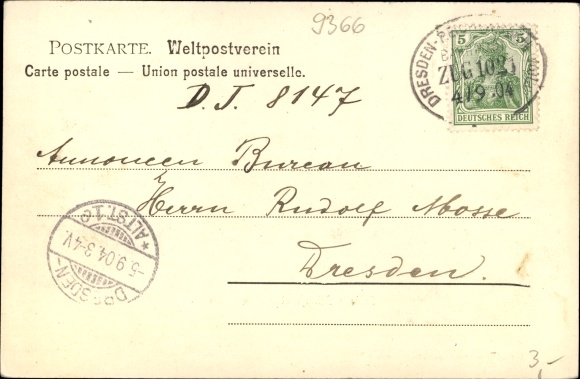 9366
POSTKARTE. Weltpostverein
Carte postale — Union postale universelle.
D. J. 8147
5 5
DRESDEN-
ZUG 102
4/9 04
DEUTSCHES REICH
Annoncen Bureau
Herrn Rudolf Mosse
Dresden.
DRESDEN-
* ALTST. 1.c
-5.9.04.3-4V.
3,-